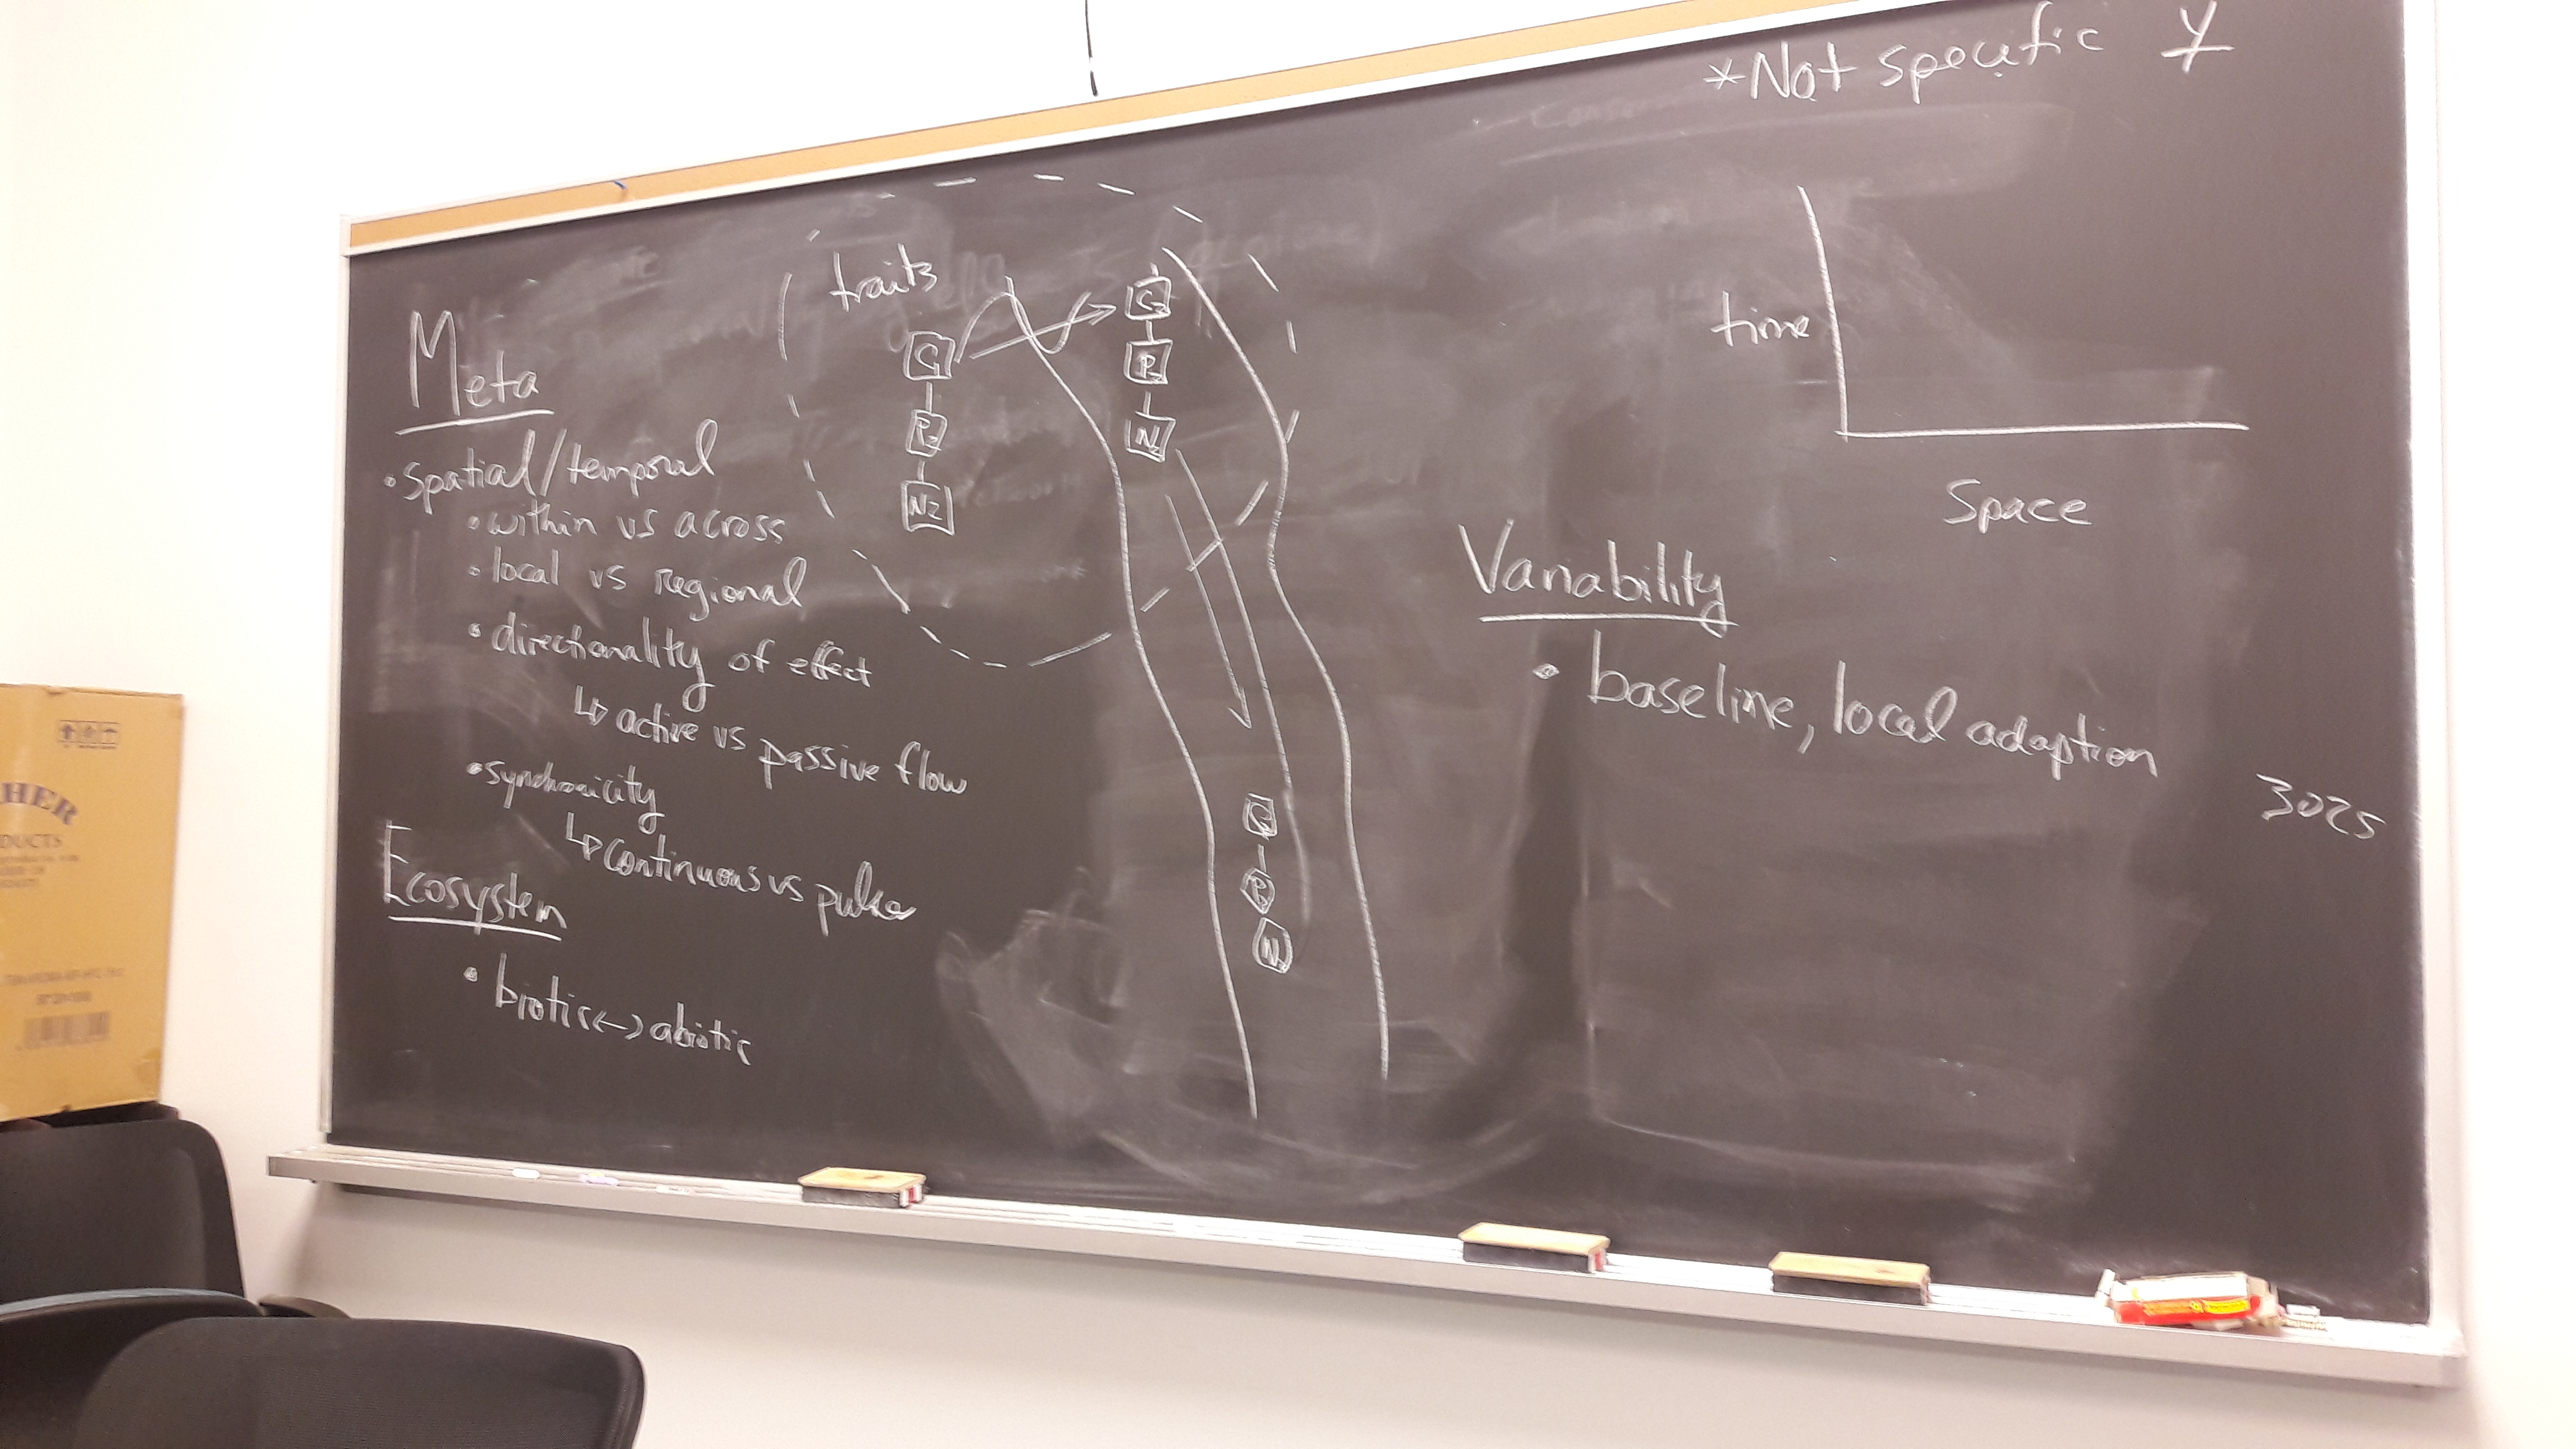 *Not specific Y
traits
Meta
• Spatial/temporal
• within vs across
• local vs regional
• directionality of effect
↳ active vs passive flow
• synchronicity
↳ continuous vs pulse
Ecosystem
• biotic <-> abiotic
C
P
N
C
P
N
C
P
N
time
Space
Variability
• baseline, local adaption
3025
HER
DUCTS